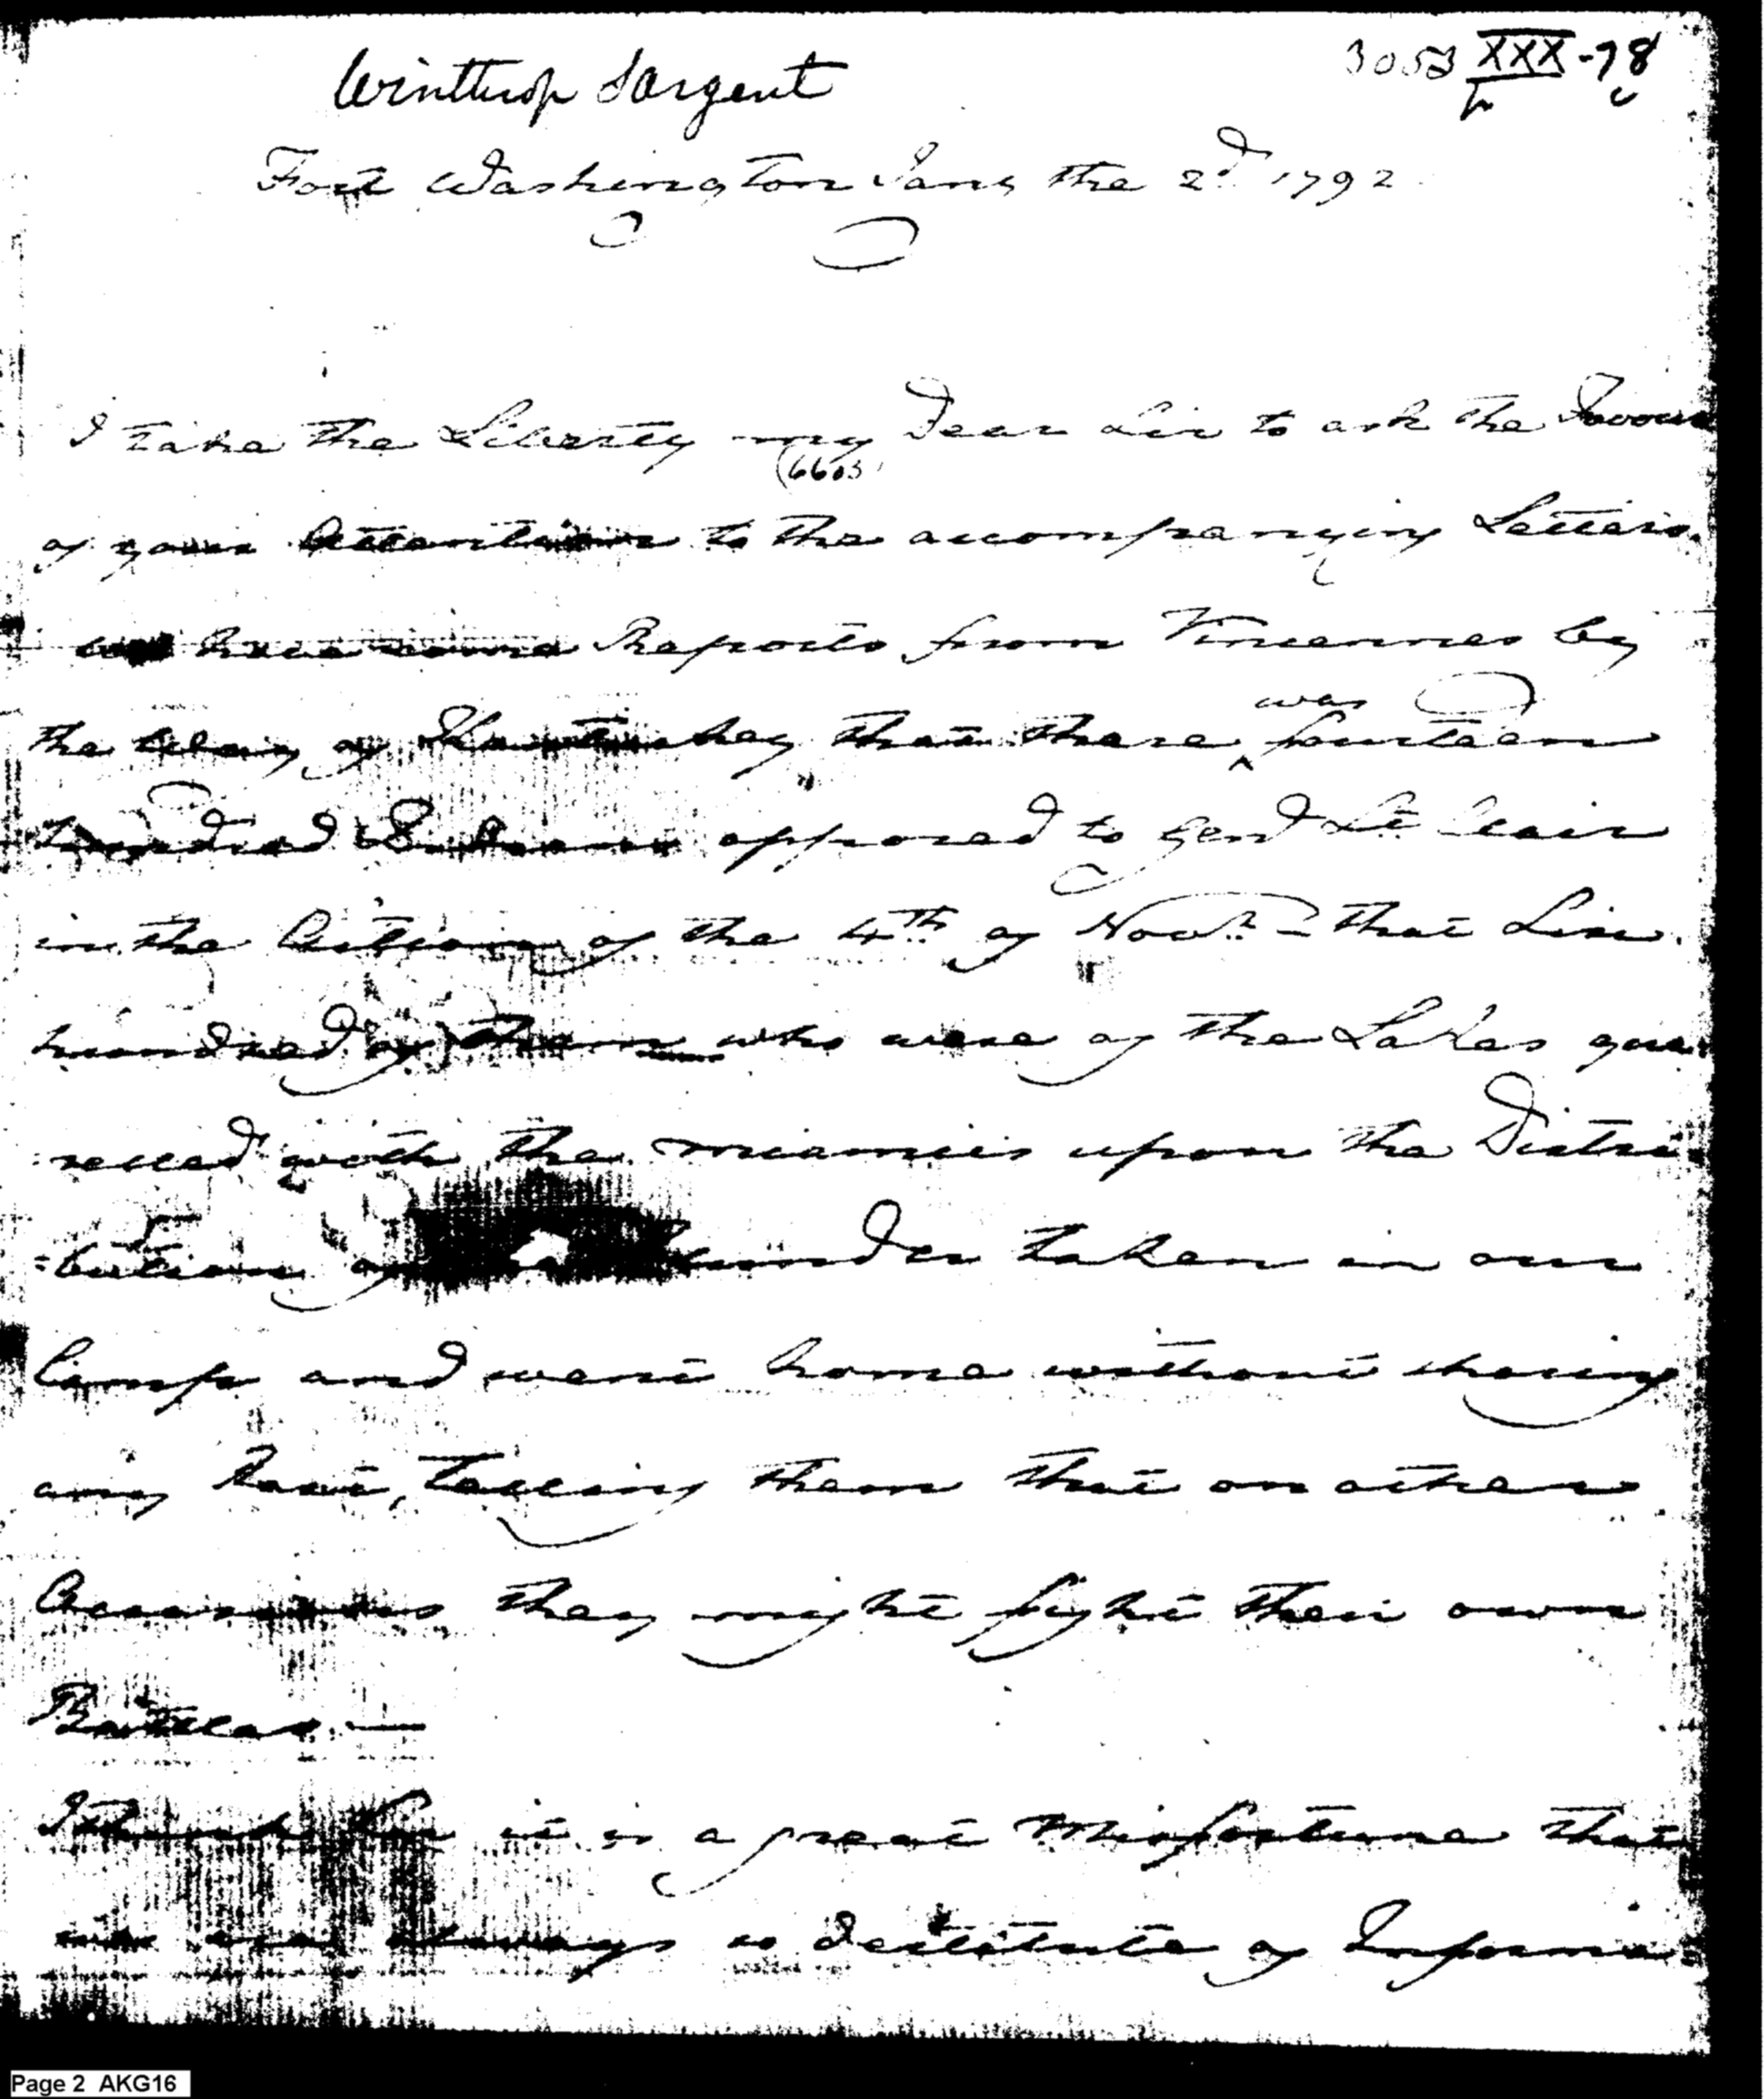 Winthrop Sargent
3053 XXX-78
Fort Washington Jany the 2d 1792
I take the Liberty my Dear Sir to ask the Favour
(660)
of your Attention to the accompanying Letters.
we have some Reports from Vincennes by
was
the way of Kentuckey that there ^ fourteen
hundred Indians opposed to Genl St Clair
in the Action of the 4th of Novr – that Six
hundred of them who were of the Lakes quar
relled with the miamiis upon the Distri-
=bution of the Plunder taken in our
Camp and went home without sharing
any Part, telling them that on other
Occasions they might fight their own
Battles. —
I think Sir it is a great Misfortune that
we are always so destitute of Informa=
Page 2 AKG16